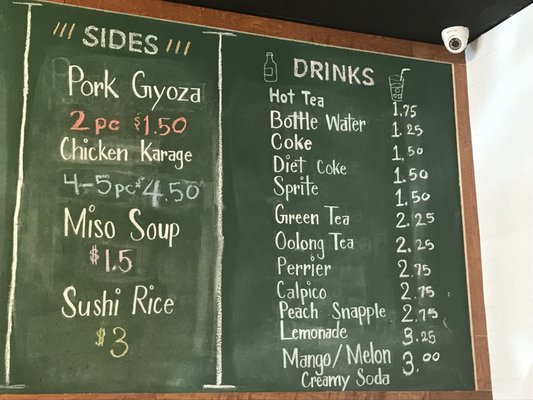 /// SIDES ///
Pork Gyoza
2 pc $1.50
Chicken Karage
4-5pc $4.50
Miso Soup
$1.5
Sushi Rice
$3
DRINKS
Hot Tea 1.75
Bottle Water 1.25
Coke 1.50
Diet Coke 1.50
Sprite 1.50
Green Tea 2.25
Oolong Tea 2.25
Perrier 2.75
Calpico 2.75
Peach Snapple 2.75
Lemonade 3.25
Mango/Melon 3.00
Creamy Soda